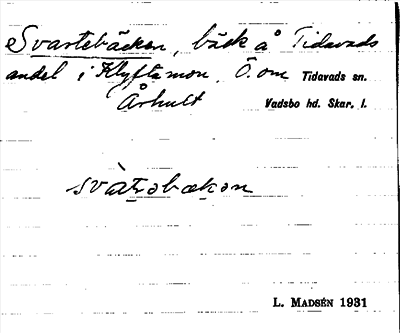 Svartebäcken, bäck å Tidavads
andel i Klyftamon, Ö. om Tidavads sn.
Århult Vadsbo hd. Skar. l.
svàtəbækən
L. MADSÉN 1931